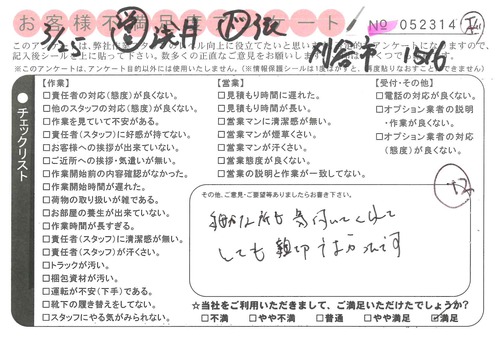 お客様不満足度アンケート
№ 052314
3/23 営 浅井
刈谷市
このアンケートは、弊社作業
記入後シールを上に貼って下さい。数多くの正直なご意見をお願いします
※このアンケートは、アンケート目的以外には使用いたしません。
チェックリスト
【作業】
□責任者の対応(態度)が良くない。
□他のスタッフの対応(態度)が良くない。
□作業を見ていて不安がある。
□責任者(スタッフ)に好感が持てない。
□お客様への挨拶が出来ていない。
□ご近所への挨拶・気遣いが無い。
□作業開始前の内容確認がなかった。
□作業開始時間が遅れた。
□荷物の取り扱いが雑である。
□お部屋の養生が出来ていない。
□作業時間が長すぎる。
□責任者(スタッフ)に清潔感が無い。
□責任者(スタッフ)が汗くさい。
□トラックが汚い。
□梱包資材が汚い。
□運転が不安(下手)である。
□靴下の履き替えをしてない。
□スタッフにやる気がみられない。
【営業】
□見積もり時間に遅れた。
□見積もり時間が長い。
□営業マンに清潔感が無い。
□営業マンが煙草くさい。
□営業マンが汗くさい。
□営業態度が良くない。
□営業の説明と作業が一致してない。
【受付・その他】
□電話の対応が良くない。
□オプション業者の説明
・作業が良くない。
□オプション業者の対応
(態度)が良くない。
+2
その他、ご意見・ご要望等ありましたらお書き下さい。
細かい所も気付いてくれて
とても親切でよかったです
☆当社をご利用いただきまして、ご満足いただけたでしょうか?
□不満 □やや不満 □普通 □やや満足 ☑満足